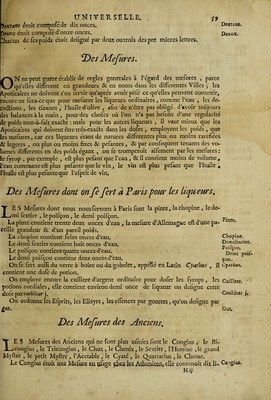 UNIVERSELLE. 59
Dextans étoit composé de dix onces.
Deunx étoit composé d'onze onces.
Chacun de ses poids étoit designé par deux ou trois des premieres lettres.
Dextans.
Deunx.
Des Mesures.
ON ne peut guere établir de regles generales à l'égard des mesures, parce
qu'elles different en grandeurs & en noms dans les differentes Villes; les
Apoticaires ne doivent s'en servir qu'après avoir pesé ce qu'elles peuvent contenir,
encore ne sera-ce que pour mesurer les liqueurs ordinaires, comme l'eau, les de-
coctions, les tisanes, l'huile d'olive, afin de n'être pas obligé d'avoir toûjours
des balances à la main, pour des choses où l'on n'a pas besoin d'une regularité
de poids tout-à-fait exacte: mais pour les autres liqueurs, il vaut mieux que les
Apoticaires qui doivent être très-exacts dans les doses, employent les poids, que
les mesures, car ces liqueurs étant de natures differentes plus ou moins rarefiées
& legeres, ou plus ou moins fixes & pesantes, & par consequent tenants des vo-
lumes differents en des poids égaux, on se tromperoit aisément par les mesures:
le syrop, par exemple, est plus pesant que l'eau, & il contient moins de volume,
l'eau commune est plus pesante que le vin, le vin est plus pesant que l'huile,
l'huile est plus pesante que l'esprit de vin.
Des Mesures dont on se sert à Paris pour les liqueurs.
LES Mesures dont nous nous servons à Paris sont la pinte, la chopine, le de-
mi sextier, le poisson, le demi poisson.
La pinte contient trente deux onces d'eau, la mesure d'Allemagne est d'une pa-
reille grandeur & d'un pareil poids.
Pinte.
La chopine contient seize onces d'eau.
Chopine.
Le demi sextier contient huit onces d'eau.
Demisextier.
Le poisson contient quatre onces d'eau.
Poisson.
Le demi poisson contient deux onces d'eau.
Demi poisson.
On se sert aussi du verre à boire ou du gobelet, appellé en Latin Cyathus, il
contient une dose de potion.
Cyathus.
On employe encore la cuilliere d'argent ordinaire pour doser les syrops, les
potions cordiales, elle contient environ demi once de liqueur on designe cette
dose par cochlear j.
Cuilliere.
Cochlear j.
On ordonne les Esprits, les Elixirs, les essences par gouttes, qu'on designe par
Gut.
Gut.
Des Mesures des Anciens.
LES Mesures des Anciens qui ne sont plus usitées sont le Congius, le Bi-
Congius, le Tricongius, le Chux, le Chenix, le Sextier, l'Hemine, le grand
Mystre, le petit Mystre, l'Acetable, le Cyaté, le Quartarius, le Cheme.
Le Congius étoit une Mesure en usage chez les Atheniens, elle contenoit dix li-
Congius.
H ij